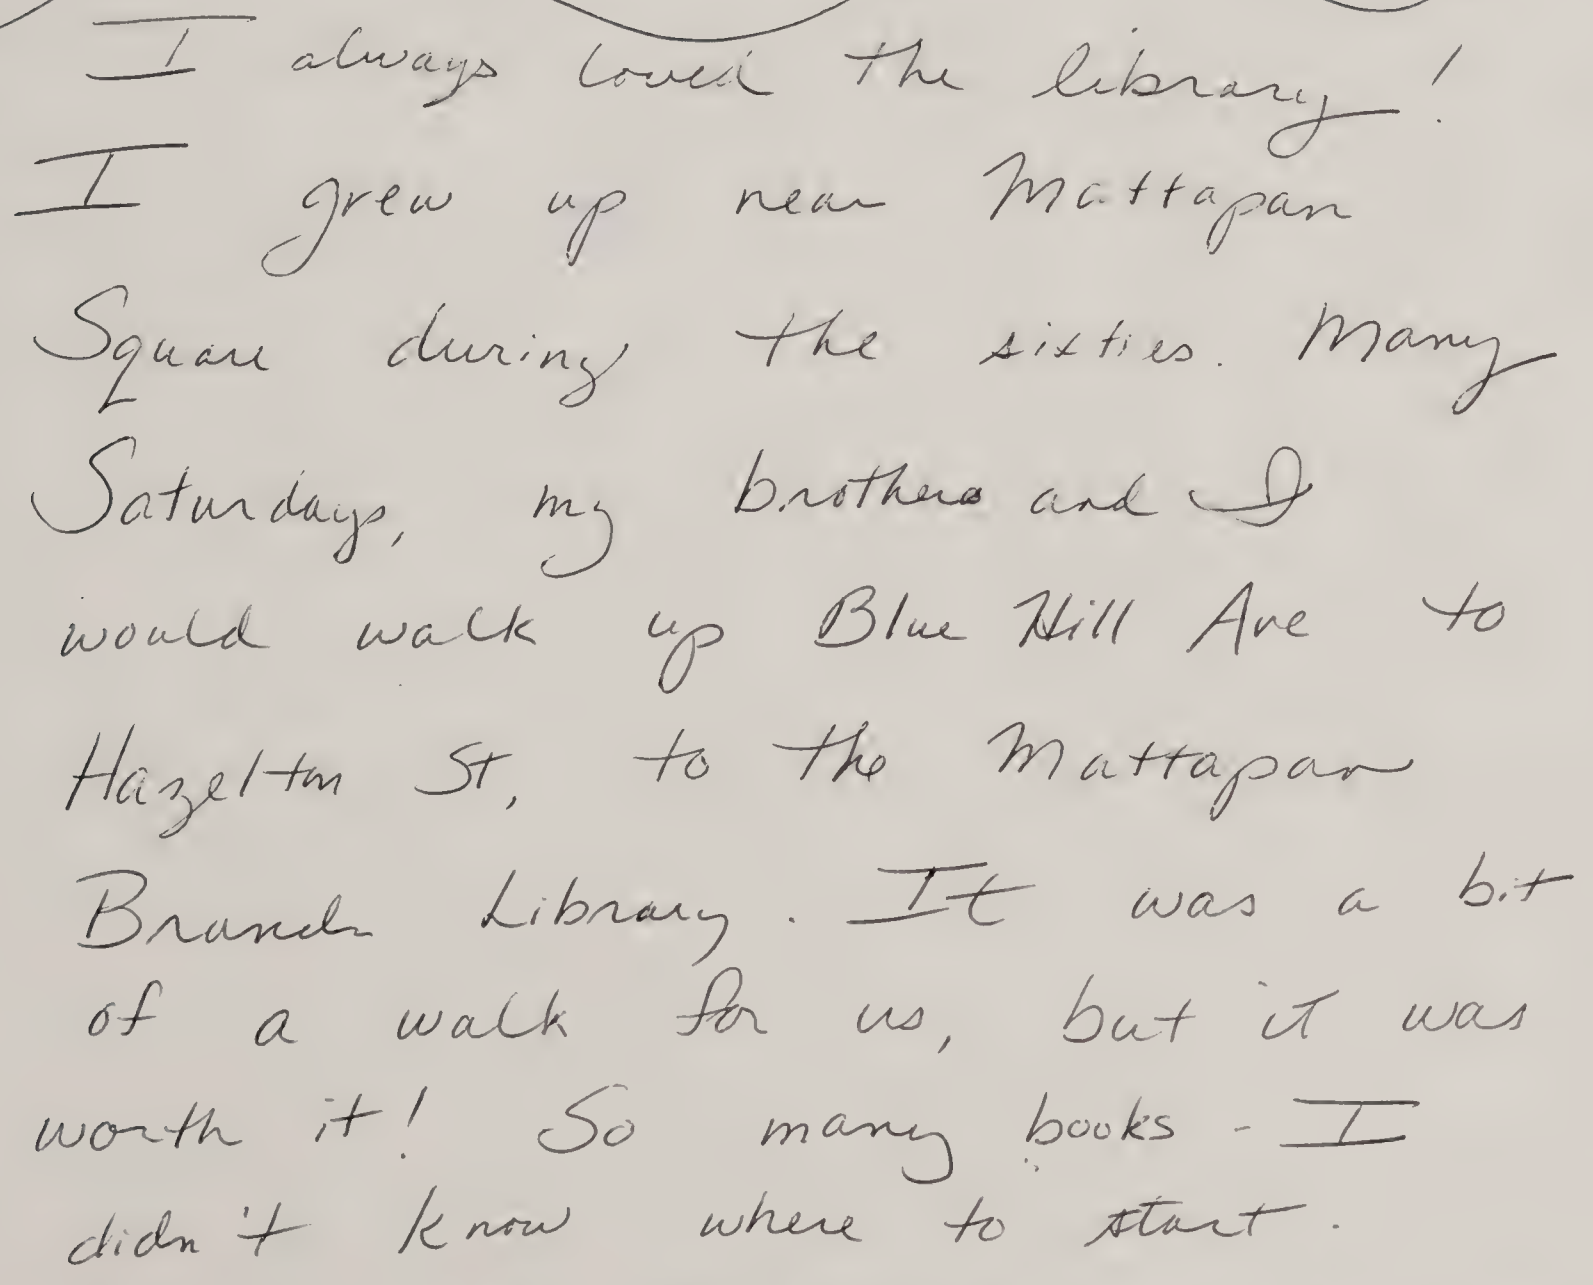 I always loved the library!
I grew up near Mattapan
Square during the sixties. Many
Saturdays, my brothers and I
would walk up Blue Hill Ave to
Hazelton St, to the Mattapan
Branch Library. It was a bit
of a walk for us, but it was
worth it! So many books - I
didn't know where to start.